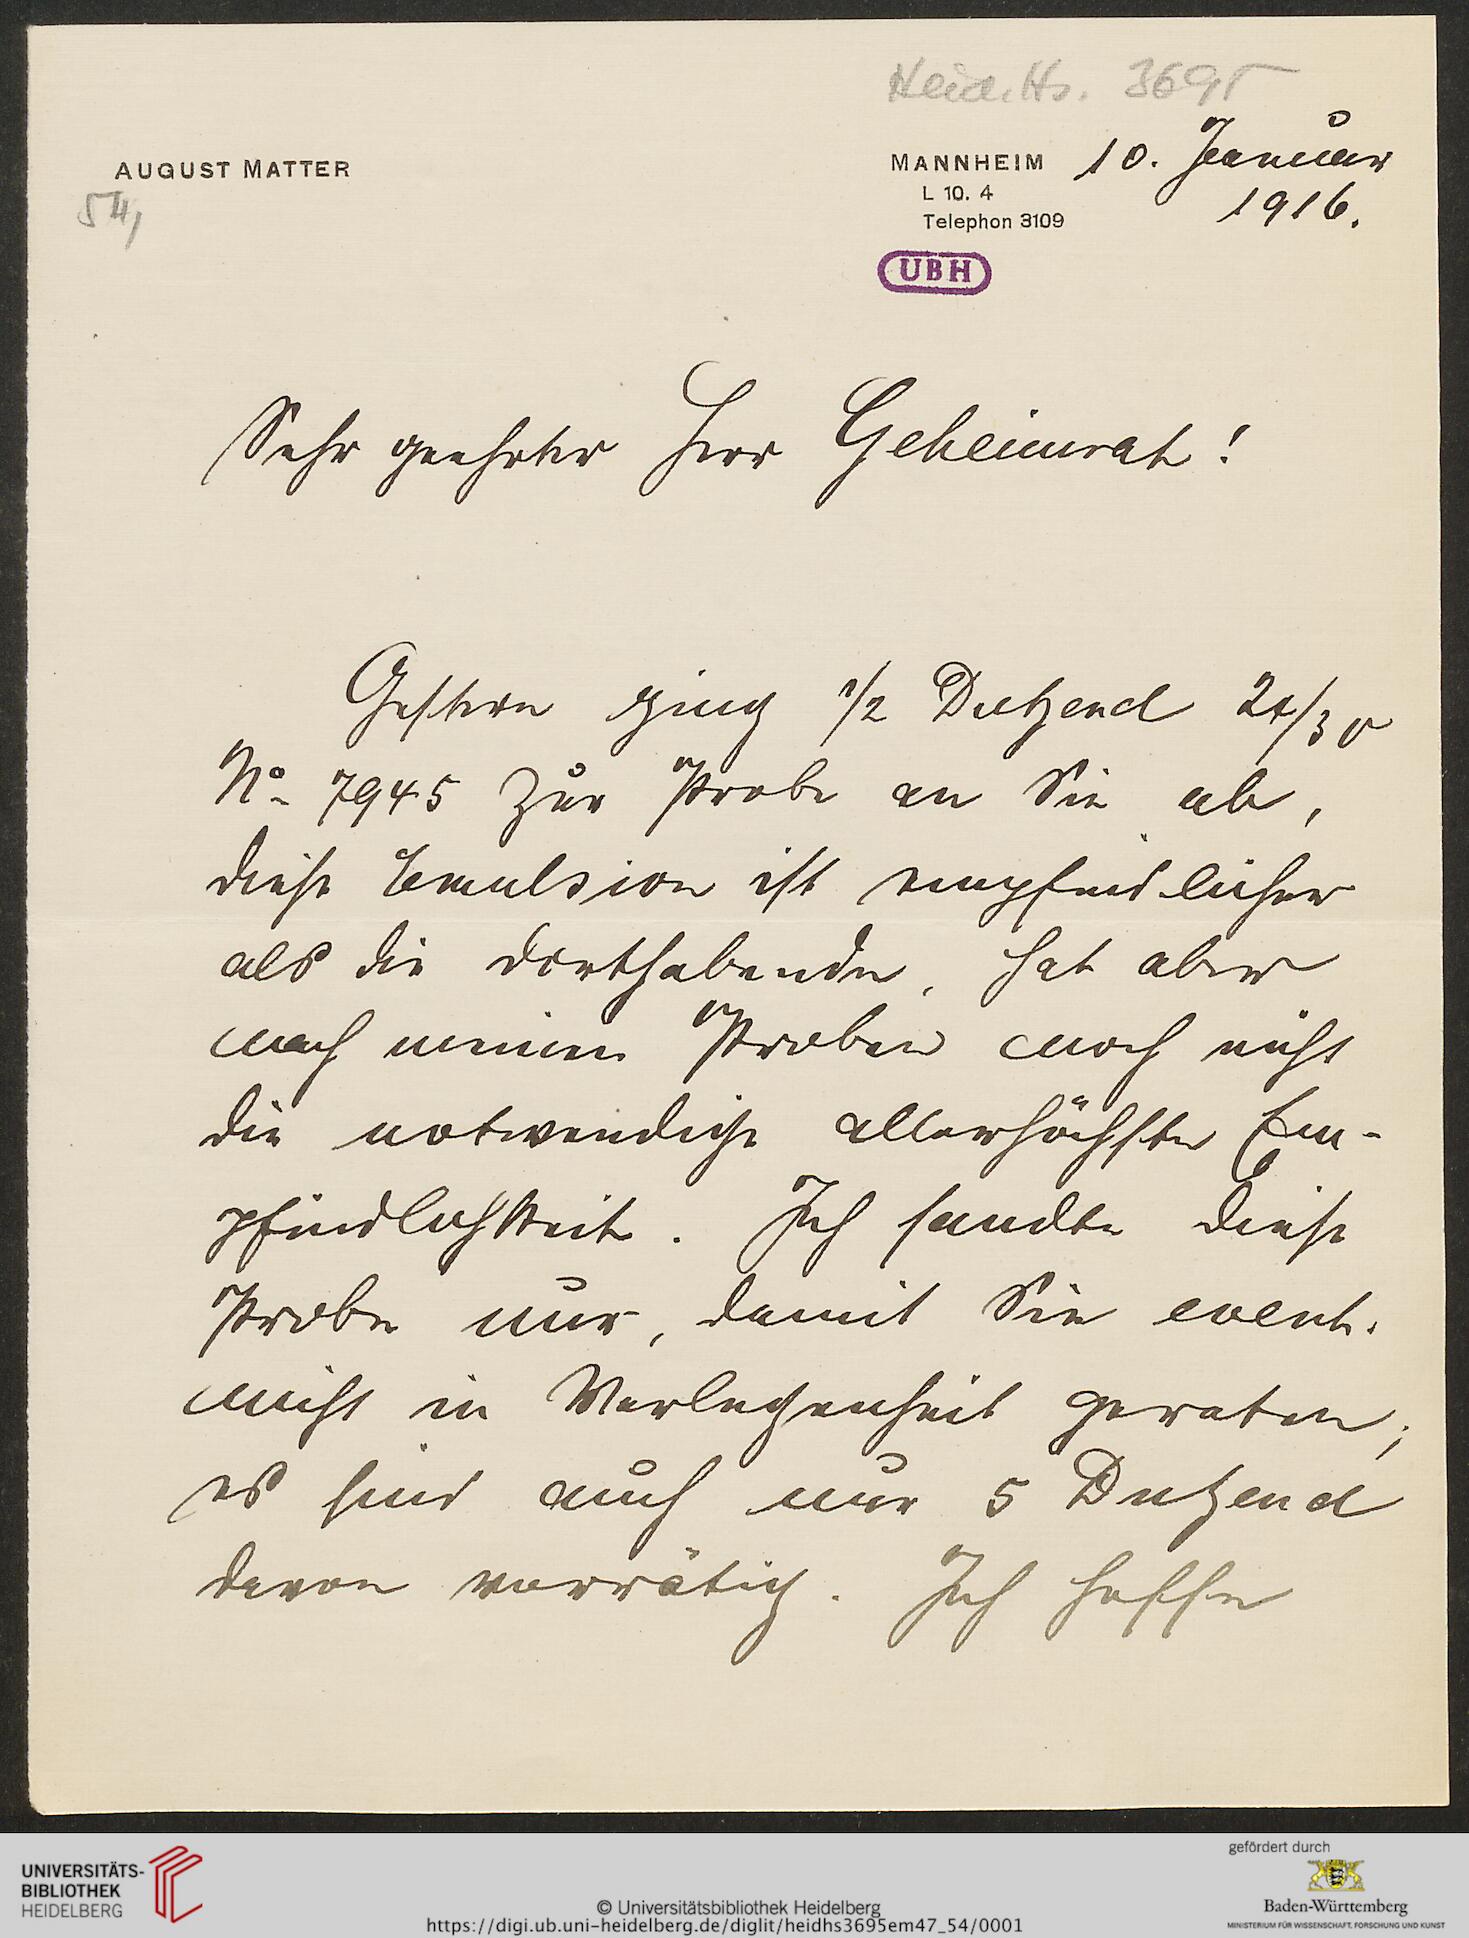 Heid. Hs. 3695
AUGUST MATTER
MANNHEIM 10. Januar
L 10. 4
1916.
Telephon 3109
54,
UBH
Sehr geehrter Herr Geheimrat!
Gestern ging 1/2 Dutzend 24/30
No 7945 zur Probe an Sie ab,
diese Emulsion ist empfindlicher
als die dorthabende, hat aber
nach meinen Proben noch nicht
die notwendige allerhöchste Em-
pfindlichkeit. Ich sandte diese
Probe nur, damit Sie event.
nicht in Verlegenheit geraten;
es sind auch nur 5 Dutzend
davon vorrätig. Ich hoffe
UNIVERSITÄTS-
BIBLIOTHEK
HEIDELBERG
© Universitätsbibliothek Heidelberg
https://digi.ub.uni-heidelberg.de/diglit/heidhs3695em47_54/0001
gefördert durch
Baden-Württemberg
MINISTERIUM FÜR WISSENSCHAFT, FORSCHUNG UND KUNST